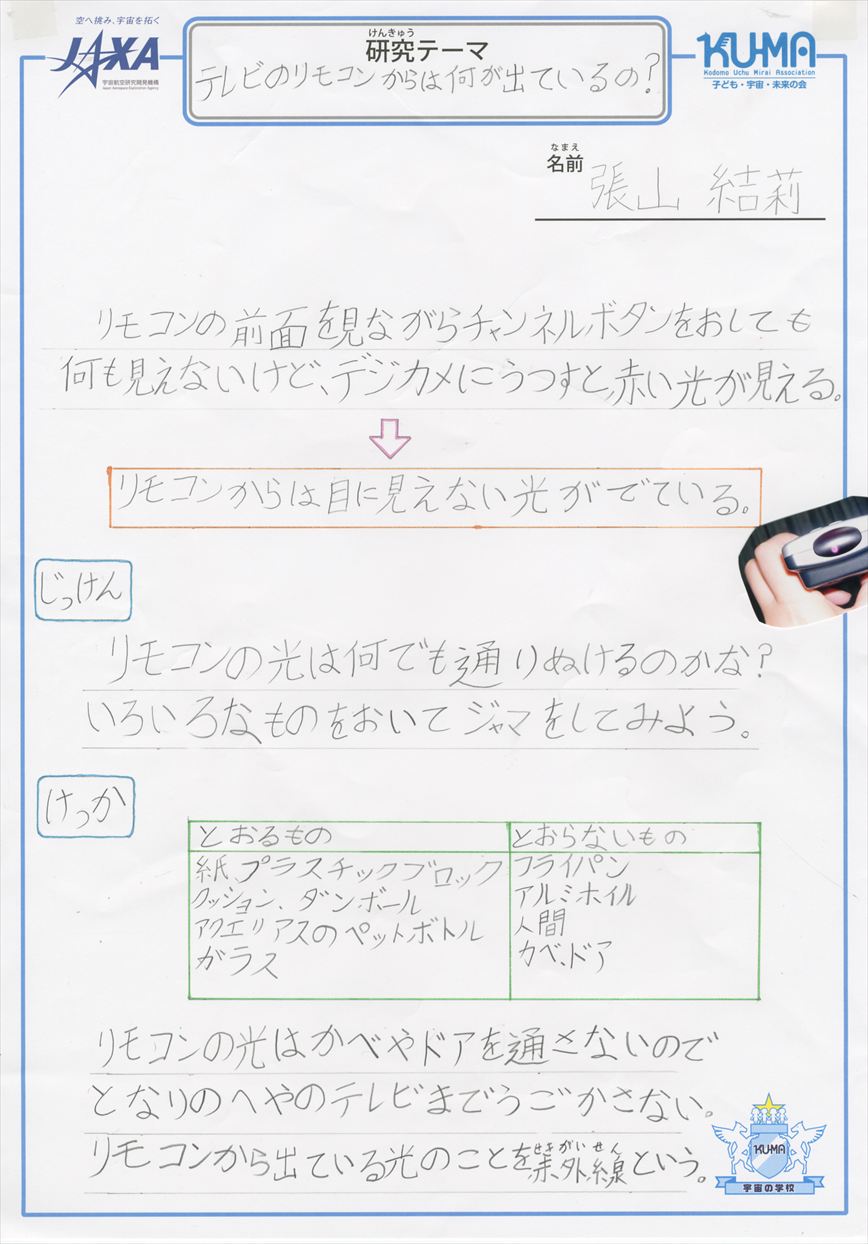 空へ挑み、宇宙を拓く
JAXA
宇宙航空研究開発機構
Japan Aerospace Exploration Agency
けんきゅう
研究テーマ
テレビのリモコンからは何が出ているの?
KU-MA
Kodomo Uchu Mirai Association
子ども・宇宙・未来の会
なまえ
名前 張山 結莉
リモコンの前面を見ながらチャンネルボタンをおしても
何も見えないけど、デジカメにうつすと、赤い光が見える。
リモコンからは目に見えない光がでている。
じっけん
リモコンの光は何でも通りぬけるのかな?
いろいろなものをおいてジャマをしてみよう。
けっか
とおるもの とおらないもの
紙、プラスチックブロック フライパン
クッション、ダンボール アルミホイル
アクエリアスのペットボトル 人間
ガラス カベ、ドア
リモコンの光はかべやドアを通さないので
となりのへやのテレビまでうごかさない。
せきがいせん
リモコンから出ている光のことを赤外線という。
KU-MA
宇宙の学校